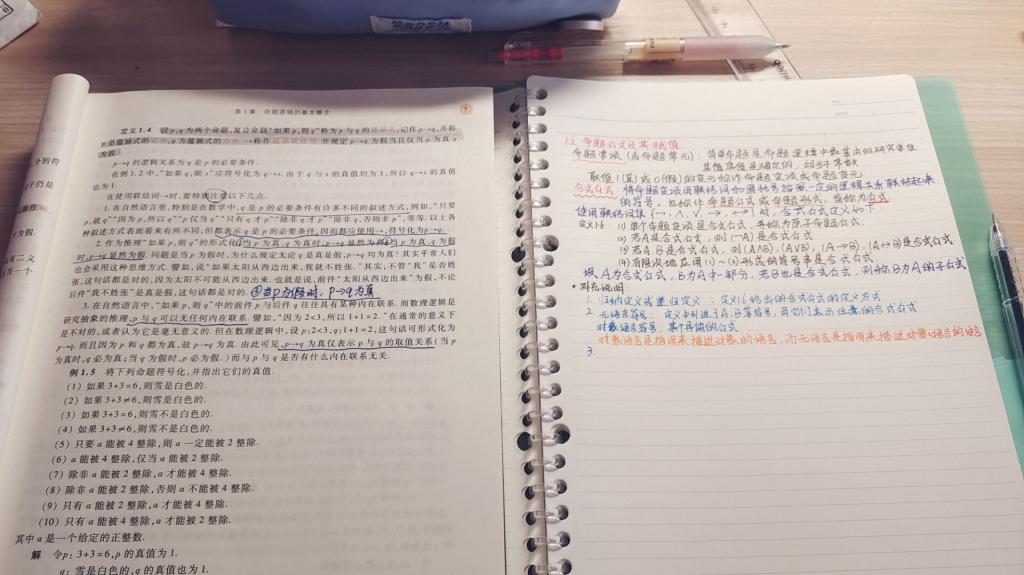 第1章 命题逻辑的基本概念
7
定义1.4 设p,q为两个命题,复合命题“如果p,则q”称为p与q的蕴涵式,记作p→q,并称
p是蕴涵式的前件,q为蕴涵式的后件.→称作蕴涵联结词.并规定p→q为假当且仅当p为真q
为假.
p→q的逻辑关系为q是p的必要条件.
在例1.2中,“如果q,则s”应符号化为q→s.由于q与s的真值均为1,所以q→s的真值
也为1.
在使用联结词→时,要特别注意以下几点.
1.在自然语言里,特别是在数学中,q是p的必要条件有许多不同的叙述方式,例如,“只要
p,就q”“因为p,所以q”“p仅当q”“只有q才p”“除非q才p”“除非q,否则非p”,等等.以上各
种叙述方式表面看来有所不同,但都表示q是p的必要条件,因而都应使用→,符号化为p→q.
2.作为推理“如果p,则q”的形式化,当p为真,q为真时,p→q显然为真;当p为真,q为假
时,p→q显然为假.问题是当p为假时,为什么规定无论q是真是假,p→q均为真?其实平常人们
也会采用这种思维方式.譬如,说“如果太阳从西边出来,我就不姓张.”其实,不管“我”是否姓
张,这句话都是对的,因为太阳不可能从西边出来.也就是说,前件“太阳从西边出来”为假,不论
后件“我不姓张”是真是假,这句话都是对的.
③当p为假时,p→q为真
3.在自然语言中,“如果p,则q”中的前件p与后件q往往具有某种内在联系.而数理逻辑是
研究抽象的推理,p与q可以无任何内在联系.譬如,“因为2<3,所以1+1=2.”在通常的意义下
是不对的,或者认为它是毫无意义的.但在数理逻辑中,设p:2<3,q:1+1=2,这句话可形式化为
p→q.而且因为p和q都为真,故p→q为真.由此可见,p→q为真仅表示p与q的取值关系(当p
为真时,q必为真;当q为假时,p必为假.)而与p与q是否有什么内在联系无关.
例1.5 将下列命题符号化,并指出它们的真值.
(1)如果3+3=6,则雪是白色的.
(2)如果3+3≠6,则雪是白色的.
(3)如果3+3=6,则雪不是白色的.
(4)如果3+3≠6,则雪不是白色的.
(5)只要a能被4整除,则a一定能被2整除.
(6)a能被4整除,仅当a能被2整除.
(7)除非a能被2整除,a才能被4整除.
(8)除非a能被2整除,否则a不能被4整除.
(9)只有a能被2整除,a才能被4整除.
(10)只有a能被4整除,a才能被2整除.
其中a是一个给定的正整数.
解 令p:3+3=6,p的真值为1.
q:雪是白色的,q的真值也为1.
1.2 命题公式及其赋值
命题常项(或命题常元):简单命题是命题逻辑中最基本的研究单位
其值真值是确定的,相当于常数
取值1(真)或0(假)的变元称作命题变项或命题变元
合式公式:将命题变项用联结词和圆括号按照一定的逻辑关系联结起来
的符号,也称作命题公式或命题形式,简称为公式
使用联结词集{¬,∧,∨,→,↔}时,合式公式定义如下
定义1.6 (1)单个命题变项是合式公式,并称为原子命题公式.
(2)若A是合式公式,则(¬A)是合式公式
(3)若A,B是合式公式,则(A∧B),(A∨B),(A→B),(A↔B)是合式公式
(4)有限次地应用(1)~(3)形成的符号串是合式公式
设A为合式公式,B为A中一部分,若B也是合式公式,则称B为A的子公式
• 补充说明
1. 归纳定义或递归定义:定义1.6给出的合式公式的定义方式
2. 元语言符号:定义中引进了A,B等符号,用它们表示任意的合式公式
对象语言符号:某个具体的公式
对象语言是指用来描述对象的语言,而元语言是指用来描述对象语言的语言
3.